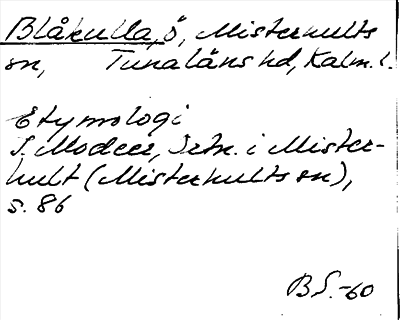 Blåkulla, ö, Misterhults
sn, Tunaläns hd, Kalm. l.
Etymologi
I. Modeer, Ortn. i Mister-
hult (Misterhults sn),
s. 86
B S. -60